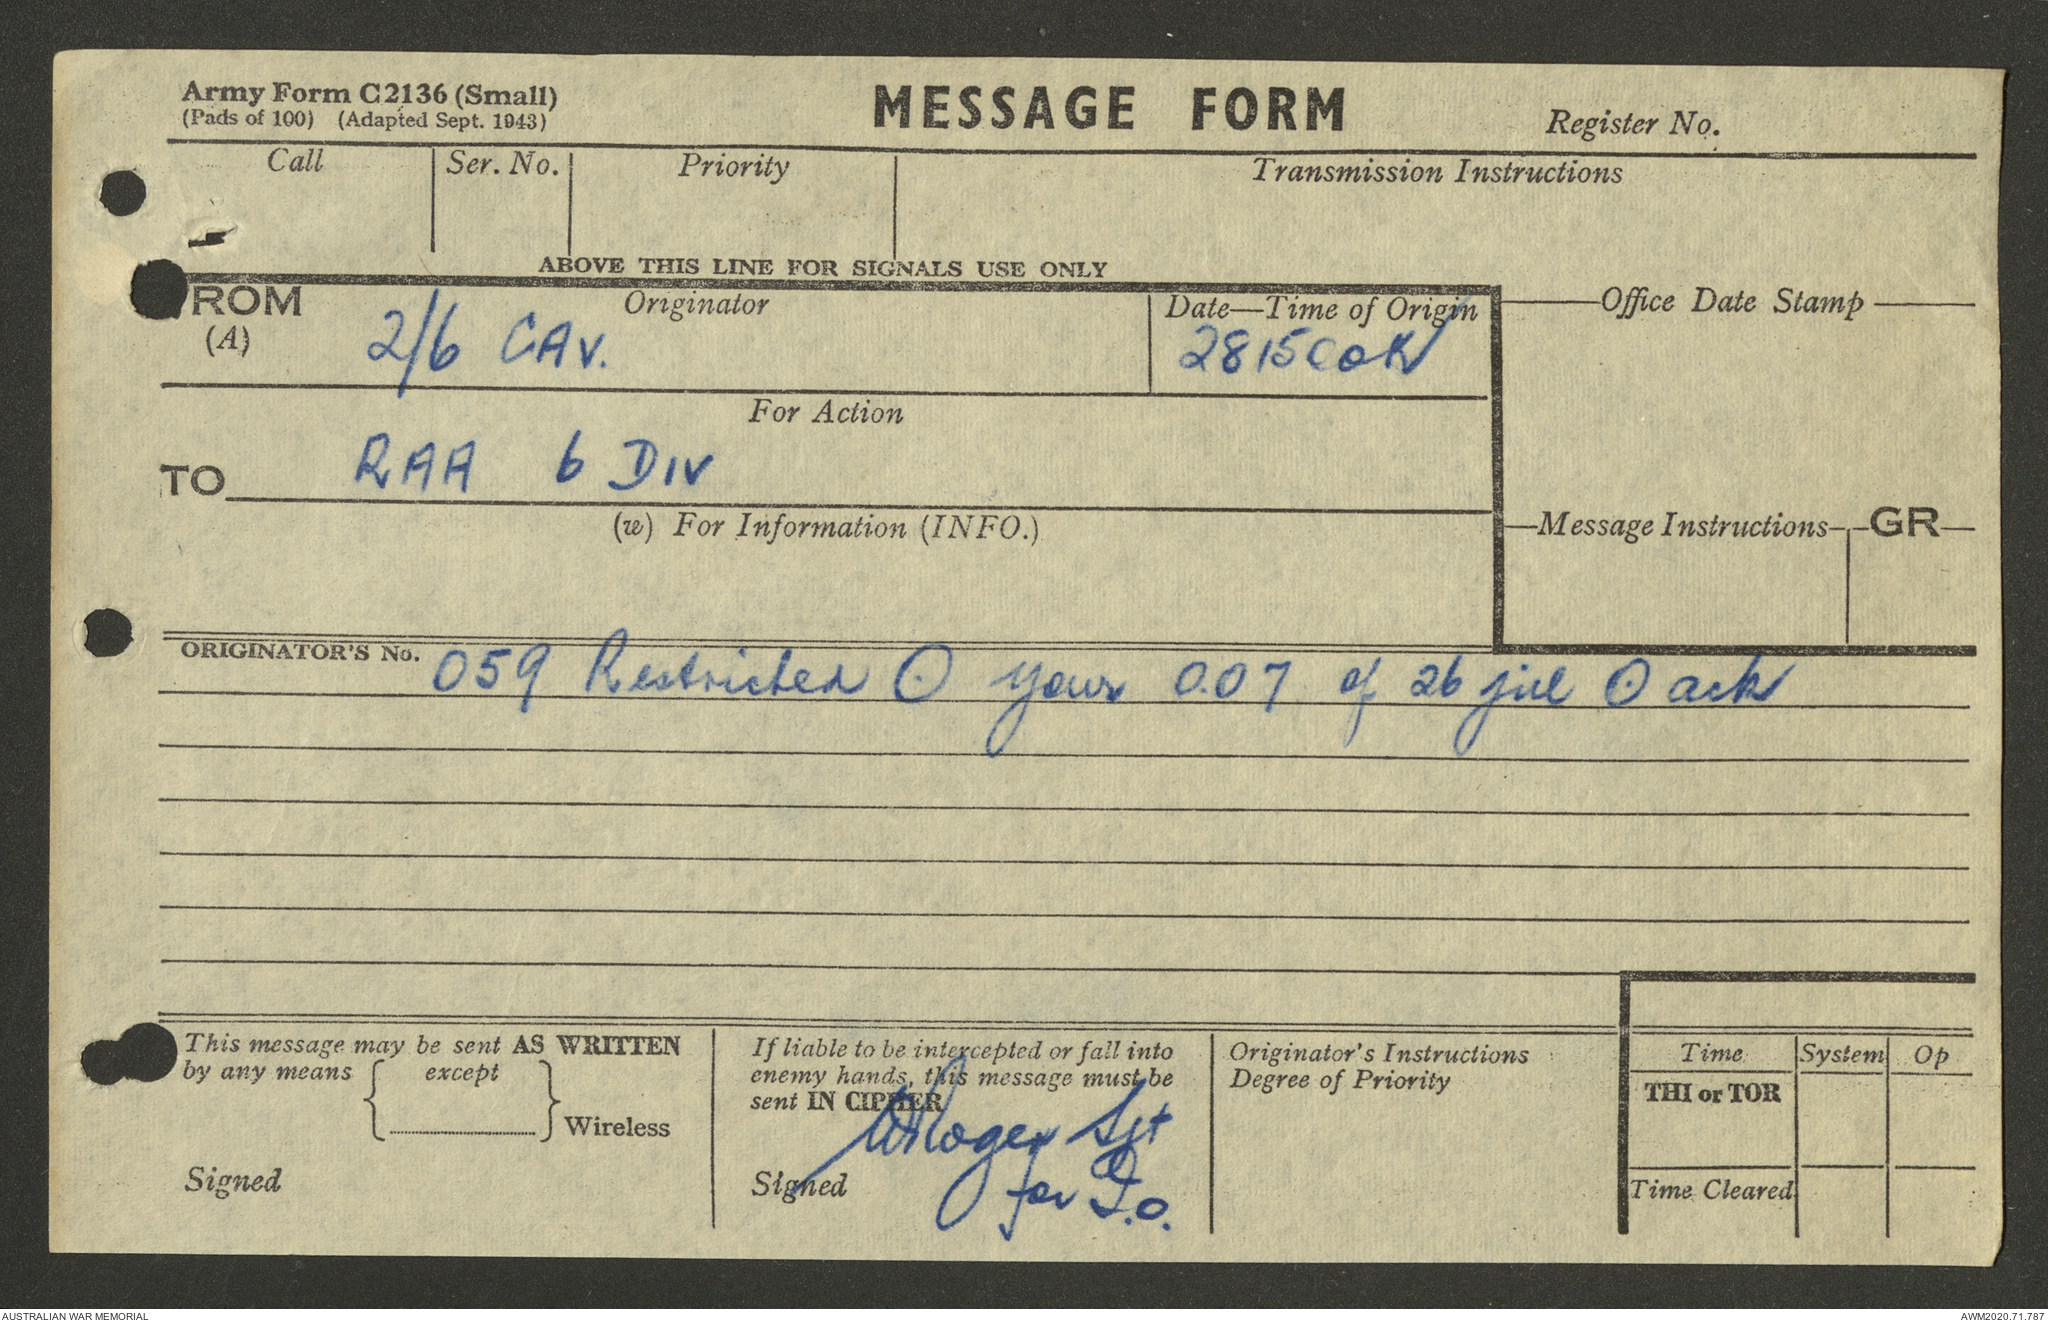 Army Form C2136 (Small)
(Pads of 100) (Adapted Sept. 1943)
MESSAGE FORM
Register No.
Call
Ser. No.
Priority
Transmission Instructions
ABOVE THIS LINE FOR SIGNALS USE ONLY
ROM
(A)
Originator
2/6 CAV.
Date—Time of Origin
Office Date Stamp
For Action
TO
RAA 6 DIV
(w) For Information (INFO.)
Message Instructions
GR
ORIGINATOR'S No.
059 Restricted ʘ your 0.07 of 26 jul ʘ ack
This message may be sent AS WRITTEN
by any means { except } Wireless
Signed
If liable to be intercepted or fall into
enemy hands, this message must be
sent IN CIPHER
Sgt
Signed
for I.O.
Originator's Instructions
Degree of Priority
Time
System
Op
THI or TOR
Time Cleared
AUSTRALIAN WAR MEMORIAL
AWM2020.71.787